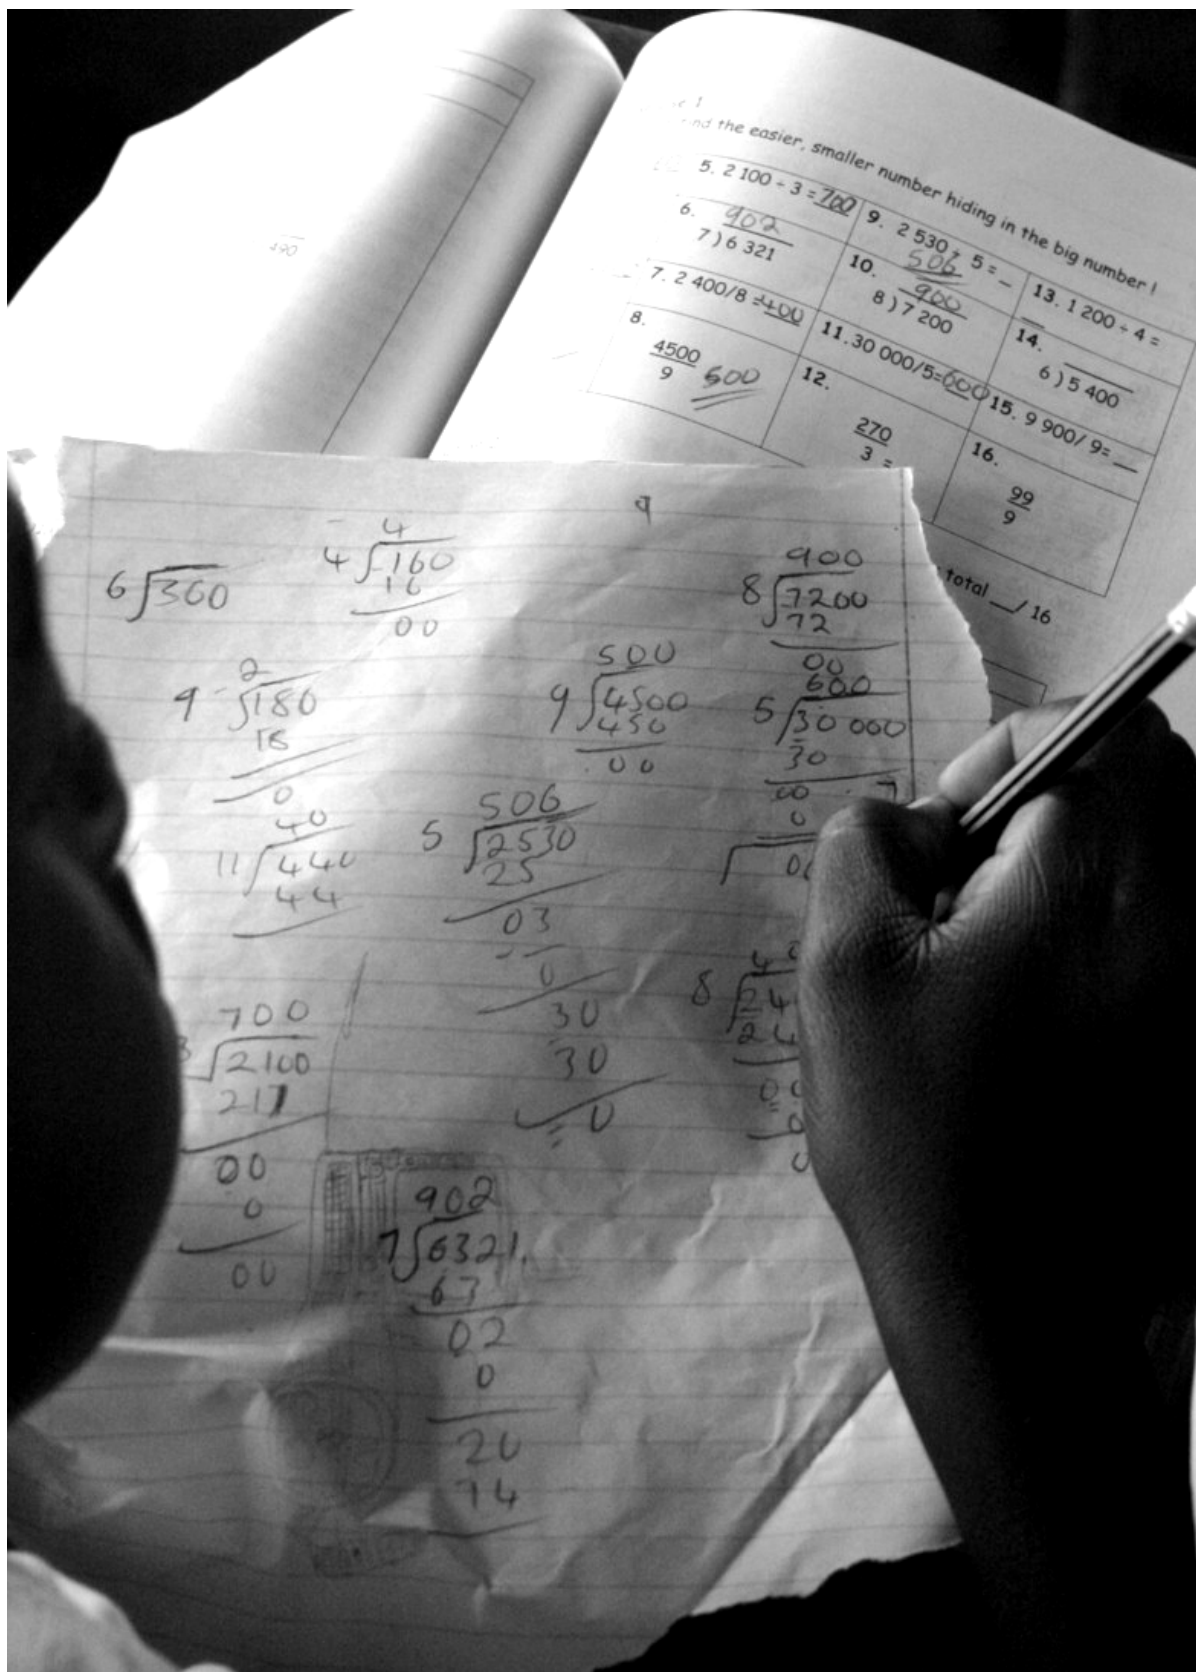 the easier, smaller number hiding in the big number !
5. 2 100 ÷ 3 = 700
6. 902
7 ) 6 321
7. 2 400/8 = 400
8.
4500
9
500
9. 2 530 ÷ 5 = _
506
10. 900
8 ) 7 200
11. 30 000/5=600
12.
270
3 =
13. 1 200 ÷ 4 =
14.
6 ) 5 400
15. 9 900/ 9= __
16.
99
9
total __/ 16
490
6 360
4
4 160
16
00
9
900
8 7200
72
00
2
9 180
18
0
500
9 4500
450
00
600
5 30 000
30
00
0
40
11 440
44
506
5 2530
25
03
0
30
30
0
700
2100
21
00
0
00
8 24
24
902
7 6321
63
02
0
20
14